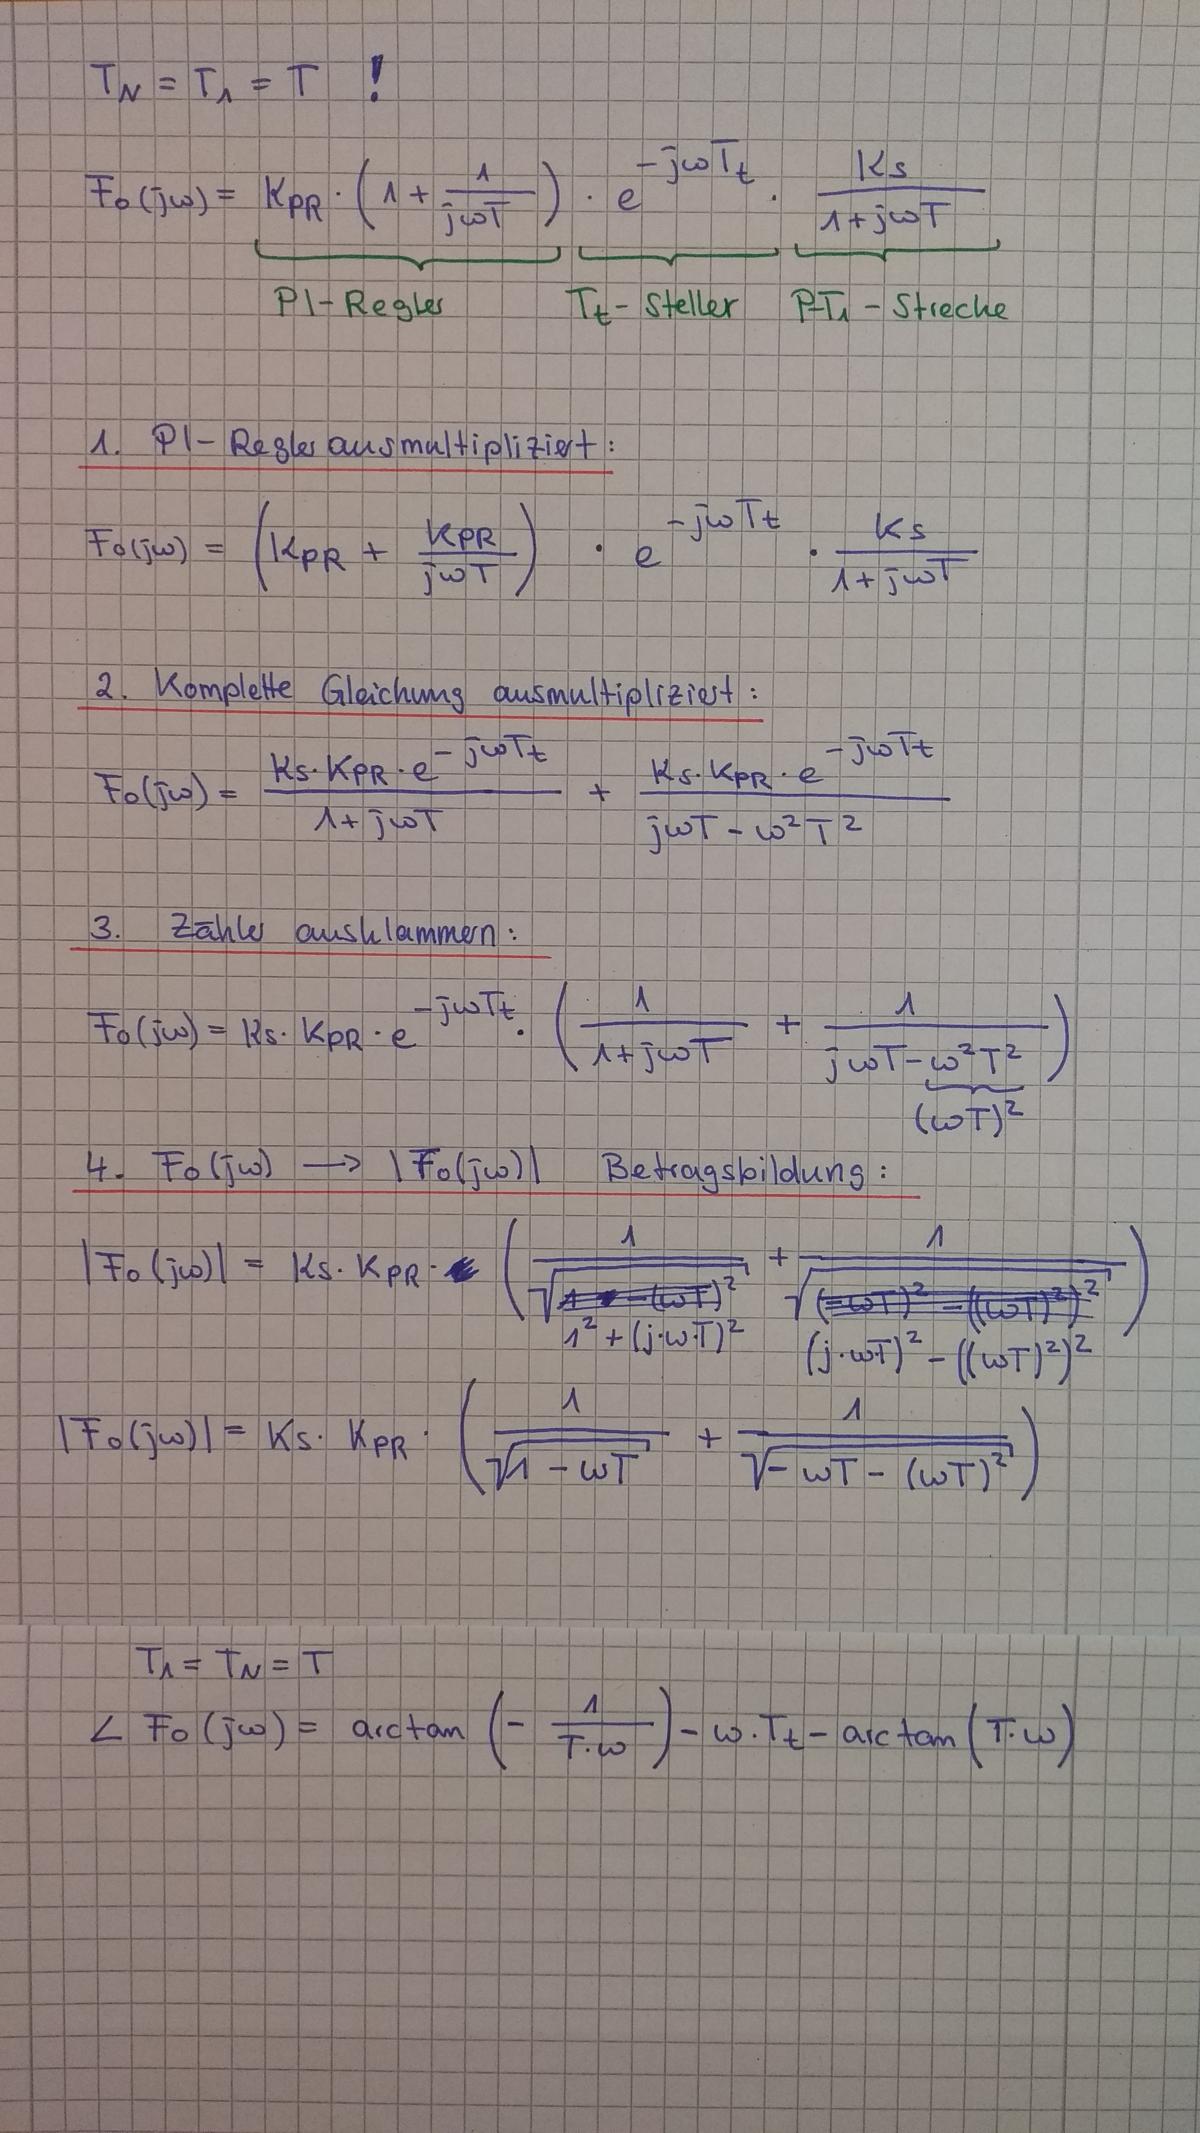 T_N = T_1 = T !
F_0(jω) = K_PR · (1 + 1/(jωT)) · e^(-jωT_t) · K_S/(1+jωT)
PI-Regler T_t-Steller P-T_1-Strecke
1. PI-Regler ausmultipliziert:
F_0(jω) = (K_PR + K_PR/(jωT)) · e^(-jωT_t) · K_S/(1+jωT)
2. Komplette Gleichung ausmultipliziert:
F_0(jω) = (K_S·K_PR·e^(-jωT_t))/(1+jωT) + (K_S·K_PR·e^(-jωT_t))/(jωT-ω²T²)
3. Zähler ausklammen:
F_0(jω) = K_S·K_PR·e^(-jωT_t) · (1/(1+jωT) + 1/(jωT-ω²T²))
(ωT)²
4. F_0(jω) → |F_0(jω)| Betragsbildung:
|F_0(jω)| = K_S·K_PR · (1/√ + 1/√)
1² + (j·ω·T)² (j·ωT)² - ((ωT)²)²
|F_0(jω)| = K_S·K_PR · (1/√(1-ωT) + 1/√(-ωT-(ωT)²))
T_1 = T_N = T
∠ F_0(jω) = arctan(-1/(T·ω)) - ω·T_t - arctan(T·ω)